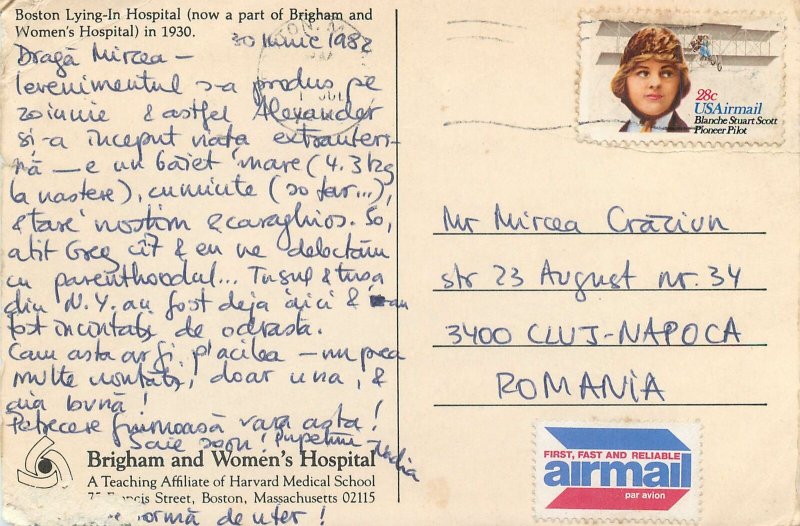 Boston Lying-In Hospital (now a part of Brigham and
Women's Hospital) in 1930.
30 Iunie 1982
Dragă Mircea –
Ievenimentul s-a produs pe
20 iunie & astfel Alexander
și-a început viața extrauteri-
nă – e un băiet mare (4.3 kg
la naștere), cuminte (so far...),
& tare nostim & caraghios. So,
atît Greg cît & eu ne delectăm
cu parenthoodul... Tușul & tușa
din N.Y. au fost deja aici & au
fost incîntați de odraslă.
Cam asta ar fi placilea – nu prea
multe noutăți, doar una, &
aia bună!
Petrecere frumoasă vara asta!
Scrie soon! Pupături Nadia
Brigham and Women's Hospital
A Teaching Affiliate of Harvard Medical School
75 Francis Street, Boston, Massachusetts 02115
formă de uter!
28c
USAirmail
Blanche Stuart Scott
Pioneer Pilot
Mr Mircea Crăciun
str 23 August nr. 34
3400 CLUJ-NAPOCA
ROMANIA
FIRST, FAST AND RELIABLE
airmail
par avion